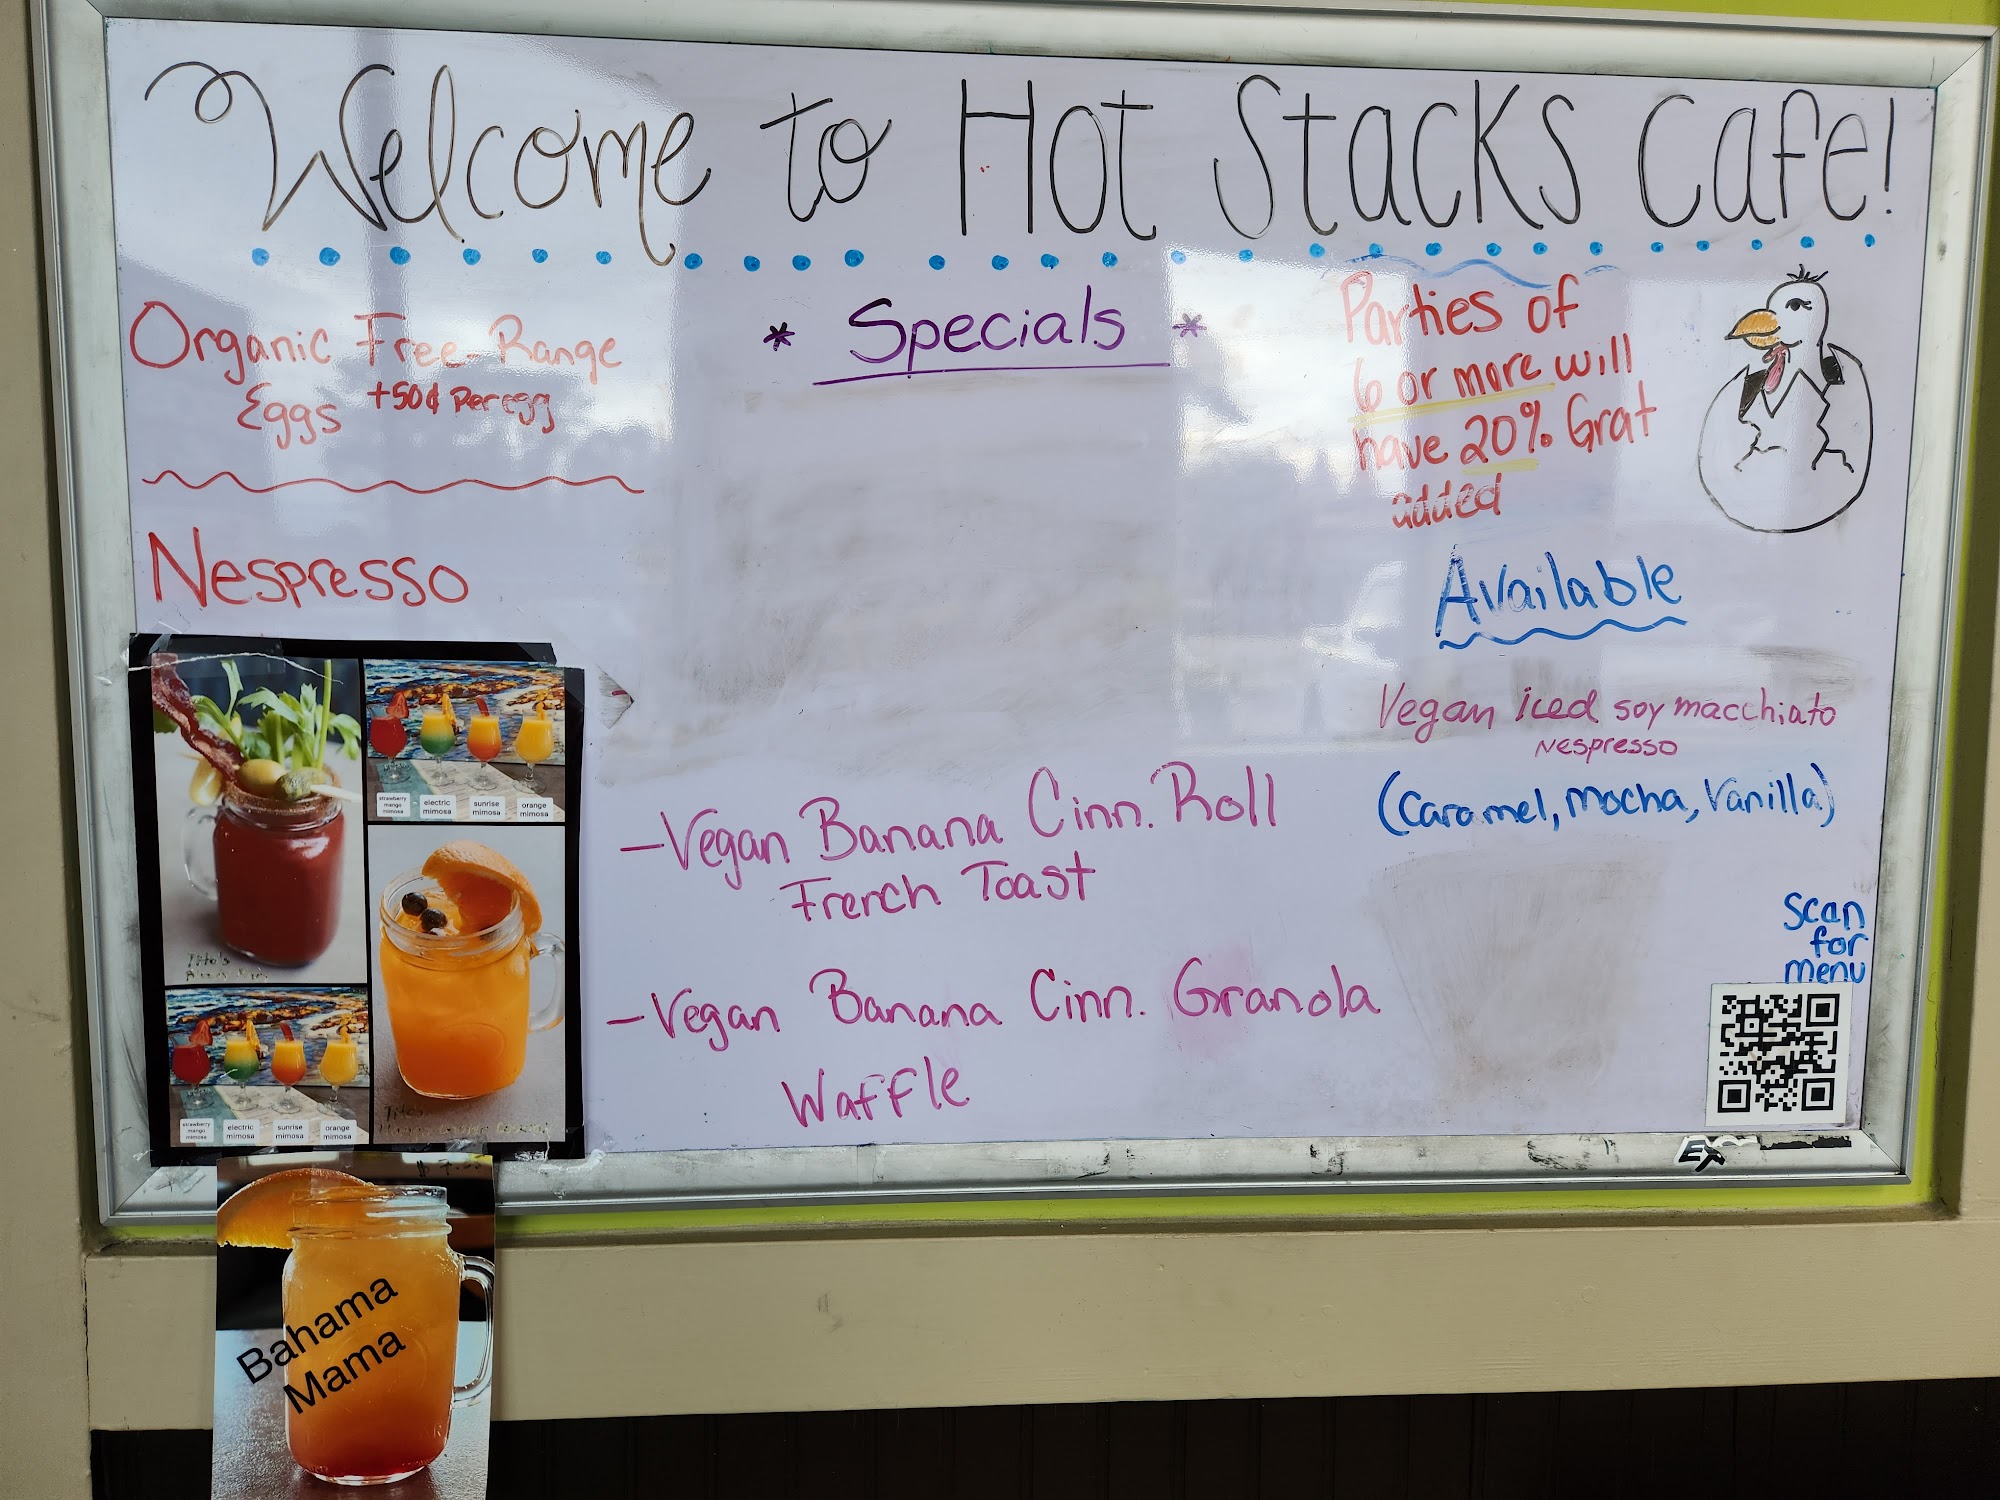 Welcome to Hot Stacks Cafe!
Organic Free-Range
Eggs +50¢ Per egg
Nespresso
* Specials *
Parties of
6 or more will
have 20% Grat
added
Available
Vegan iced soy macchiato
Nespresso
(Caramel, Mocha, Vanilla)
- Vegan Banana Cinn. Roll
French Toast
- Vegan Banana Cinn. Granola
Waffle
Scan
for
menu
strawberry mango mimosa
electric mimosa
sunrise mimosa
orange mimosa
Tito's
strawberry mango mimosa
electric mimosa
sunrise mimosa
orange mimosa
Tito's
Bahama
Mama